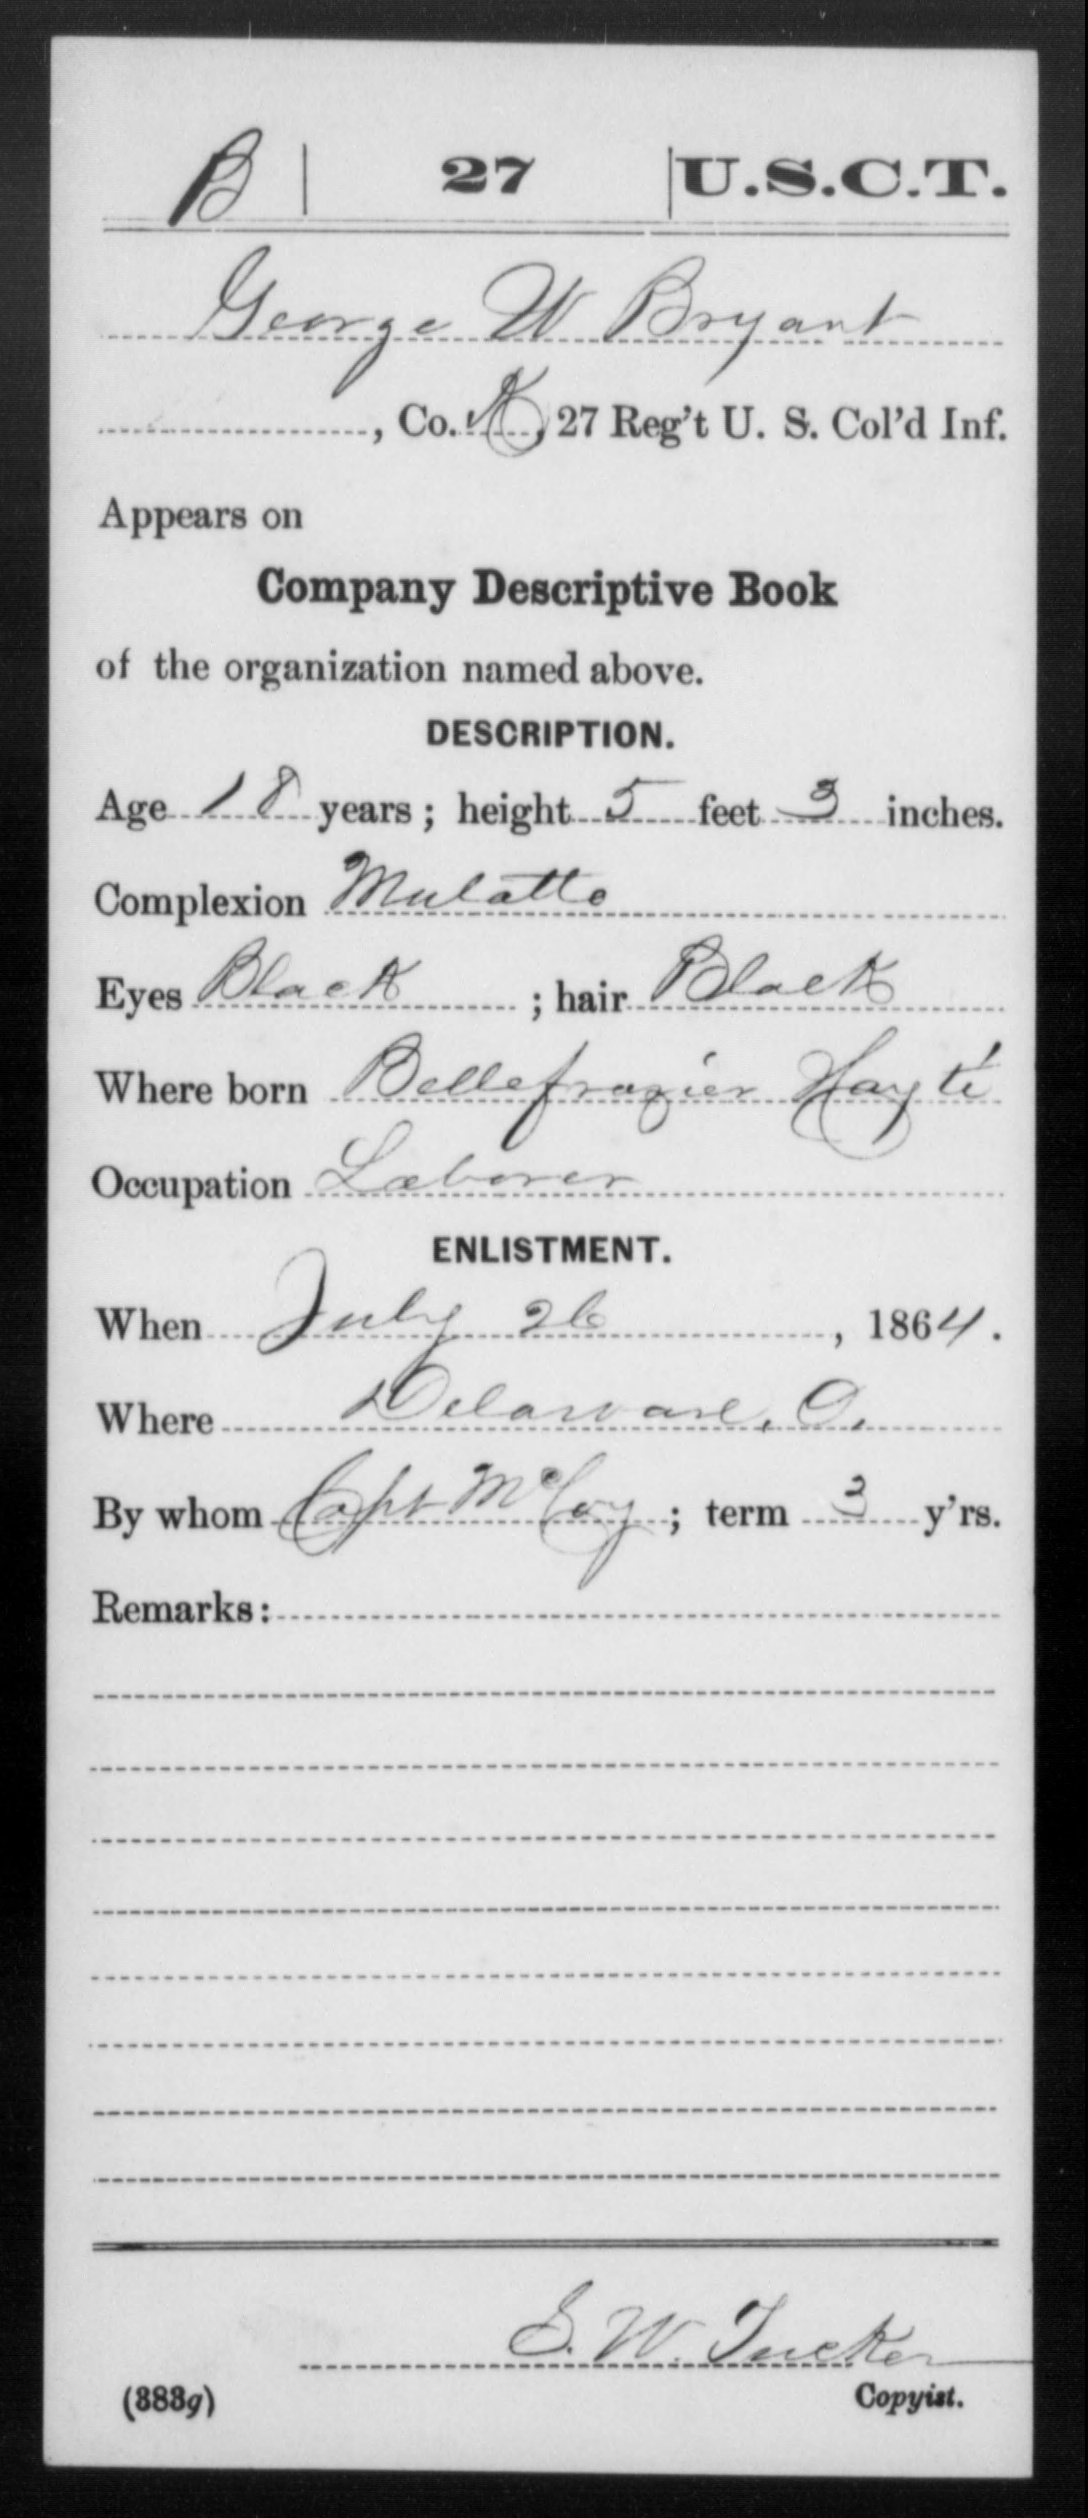 B | 27 | U.S.C.T.
George W Bryant
, Co. K, 27 Reg't U. S. Col'd Inf.
Appears on
Company Descriptive Book
of the organization named above.
DESCRIPTION.
Age 18 years; height 5 feet 3 inches.
Complexion Mulatto
Eyes Black ; hair Black
Where born Bellefrazier Hayti
Occupation Laborer
ENLISTMENT.
When July 26, 1864.
Where Delaware, O.
By whom Capt McCoy; term 3 y'rs.
Remarks:
S. W. Tucker
(383g) Copyist.